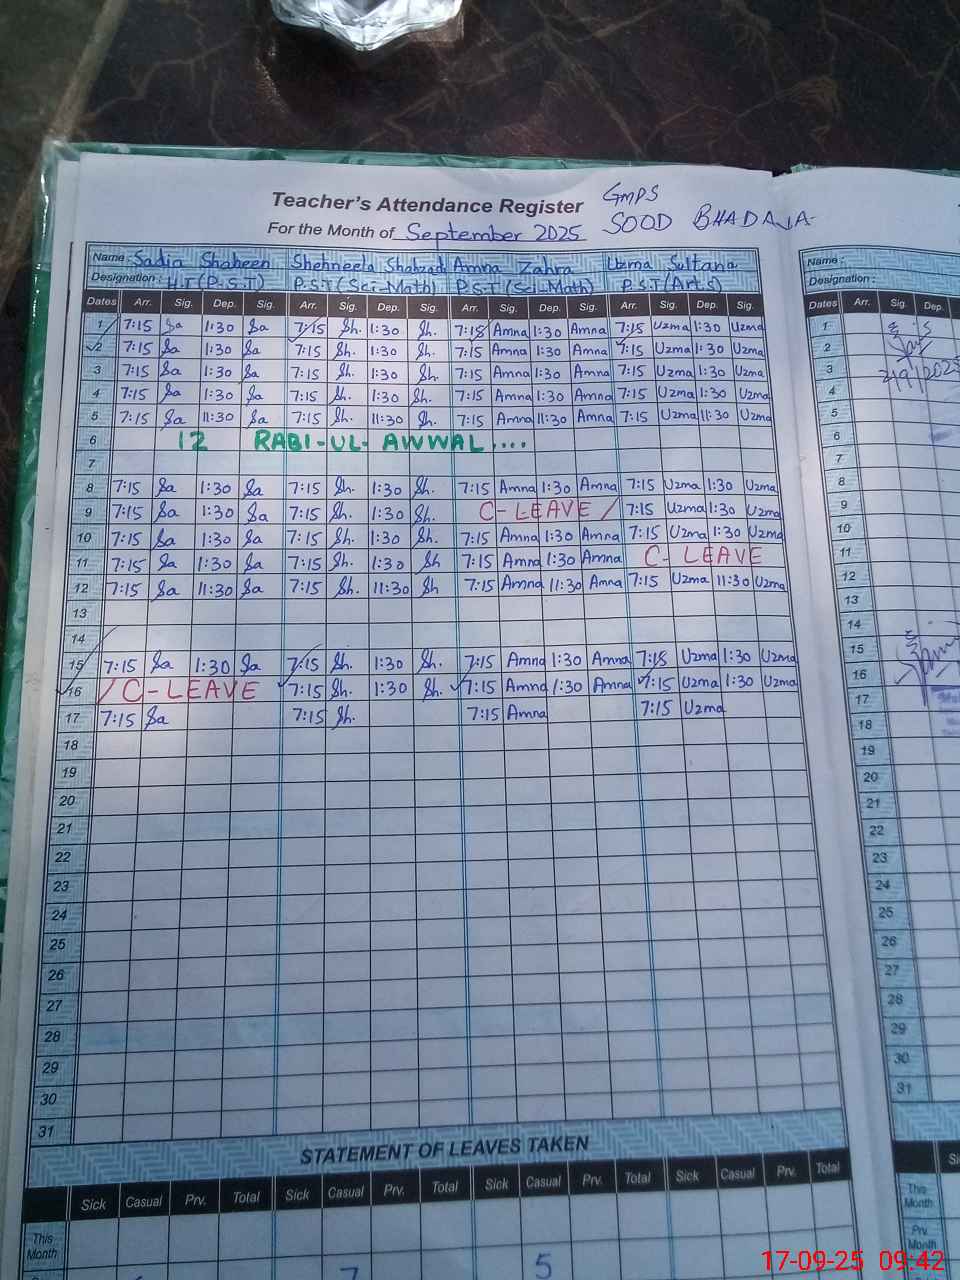 Teacher's Attendance Register GMPS
For the Month of September 2025 SOOD BHADANA
Name: Sadia Shaheen Shehneela Shahzadi Amna Zahra Uzma Sultana
Designation: H.T (P.S.T) P.S.T (Sci-Math) P.S.T (Sci-Math) P.S.T (Arts)
Dates Arr. Sig. Dep. Sig. Arr. Sig. Dep. Sig. Arr. Sig. Dep. Sig. Arr. Sig. Dep. Sig.
1 7:15 Sa 1:30 Sa 7:15 Sh. 1:30 Sh. 7:15 Amna 1:30 Amna 7:15 Uzma 1:30 Uzma
2 7:15 Sa 1:30 Sa 7:15 Sh. 1:30 Sh. 7:15 Amna 1:30 Amna 7:15 Uzma 1:30 Uzma
3 7:15 Sa 1:30 Sa 7:15 Sh. 1:30 Sh. 7:15 Amna 1:30 Amna 7:15 Uzma 1:30 Uzma
4 7:15 Sa 1:30 Sa 7:15 Sh. 1:30 Sh. 7:15 Amna 1:30 Amna 7:15 Uzma 1:30 Uzma
5 7:15 Sa 11:30 Sa 7:15 Sh. 11:30 Sh. 7:15 Amna 11:30 Amna 7:15 Uzma 11:30 Uzma
6 12 RABI-UL-AWWAL....
7
8 7:15 Sa 1:30 Sa 7:15 Sh. 1:30 Sh. 7:15 Amna 1:30 Amna 7:15 Uzma 1:30 Uzma
9 7:15 Sa 1:30 Sa 7:15 Sh. 1:30 Sh. C-LEAVE 7:15 Uzma 1:30 Uzma
10 7:15 Sa 1:30 Sa 7:15 Sh. 1:30 Sh. 7:15 Amna 1:30 Amna 7:15 Uzma 1:30 Uzma
11 7:15 Sa 1:30 Sa 7:15 Sh. 1:30 Sh 7:15 Amna 1:30 Amna C-LEAVE
12 7:15 Sa 11:30 Sa 7:15 Sh. 11:30 Sh 7:15 Amna 11:30 Amna 7:15 Uzma 11:30 Uzma
13
14
15 7:15 Sa 1:30 Sa 7:15 Sh. 1:30 Sh. 7:15 Amna 1:30 Amna 7:15 Uzma 1:30 Uzma
16 C-LEAVE 7:15 Sh. 1:30 Sh. 7:15 Amna 1:30 Amna 7:15 Uzma 1:30 Uzma
17 7:15 Sa 7:15 Sh. 7:15 Amna 7:15 Uzma
18
19
20
21
22
23
24
25
26
27
28
29
30
31
STATEMENT OF LEAVES TAKEN
Sick Casual Prv. Total Sick Casual Prv. Total Sick Casual Prv. Total Sick Casual Prv. Total
This Month
7 5
Name:
Designation:
Dates Arr. Sig. Dep.
1
2
3 2/9/2025
4
5
6
7
8
9
10
11
12
13
14
15
16
17
18
19
20
21
22
23
24
25
26
27
28
29
30
31
This Month
Prv. Month
17-09-25 09:42